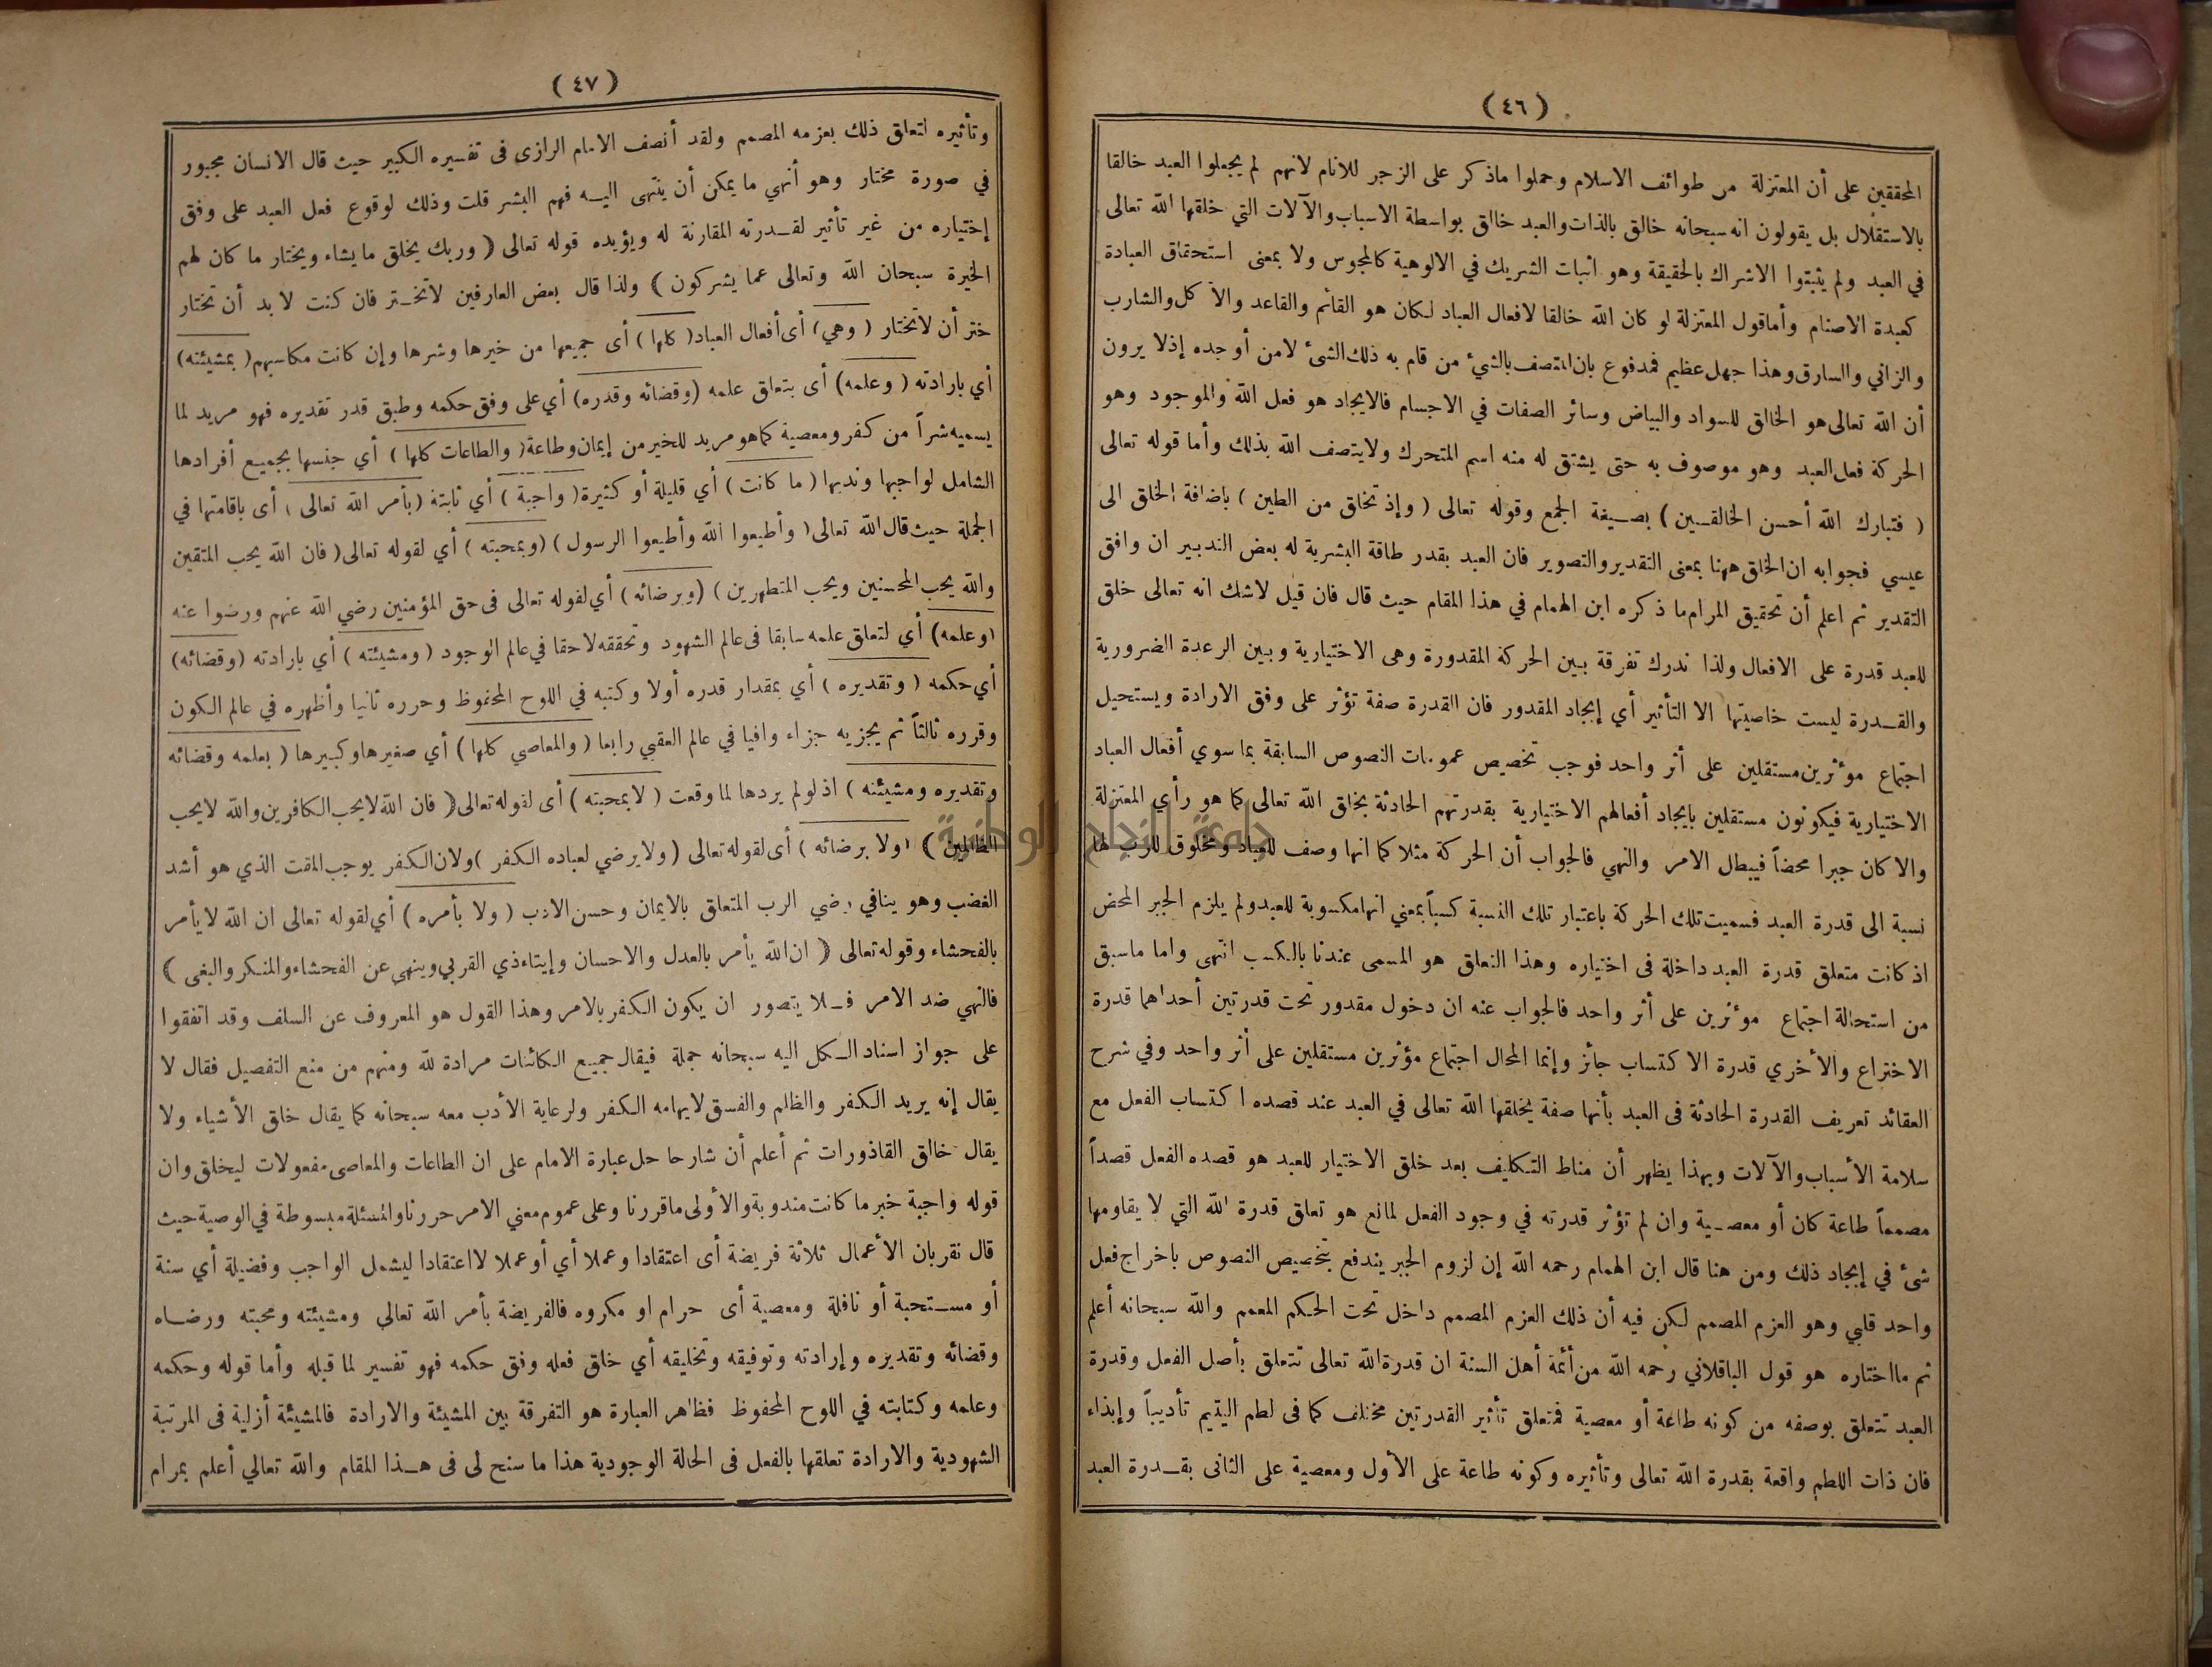 (٤٦)
المحققين على أن المعتزلة من طوائف الاسلام وحملوا ماذكر على الزجر للانام لانهم لم يجعلوا العبد خالقا
بالاستقلال بل يقولون انه سبحانه خالق بالذات والعبد خالق بواسطة الاسباب والآلات التي خلقها الله تعالى
في العبد ولم يثبتوا الاشراك بالحقيقة وهو اثبات الشريك في الالوهية كالمجوس ولا بمعنى استحقاق العبادة
كعبدة الاصنام وأماقول المعتزلة لو كان الله خالقا لافعال العباد لكان هو القائم والقاعد والآ كل والشارب
والزاني والسارق وهذا جهل عظيم فمدفوع بان المتصف بالشيء من قام به ذلك الشئ لامن أوجده إذلا يرون
أن الله تعالى هو الخالق للسواد والبياض وسائر الصفات في الاجسام فالايجاد هو فعل الله والموجود وهو
الحركة فعل العبد وهو موصوف به حتى يشتق له منه اسم المتحرك ولايتصف الله بذلك وأما قوله تعالى
( فتبارك الله أحسن الخالقين ) بصيغة الجمع وقوله تعالى ( وإذ تخلق من الطين ) باضافة الخلق الى
عيسي فجوابه ان الخلق ههنا بمعنى التقدير والتصوير فان العبد بقدر طاقة البشرية له بعض التدبير ان وافق
التقدير ثم اعلم أن تحقيق المرام ما ذكره ابن الهمام في هذا المقام حيث قال فان قيل لاشك انه تعالى خلق
للعبد قدرة على الافعال ولذا ندرك تفرقة بين الحركة المقدورة وهى الاختيارية وبين الرعدة الضرورية
والقدرة ليست خاصيتها الا التأثير أي إيجاد المقدور فان القدرة صفة تؤثر على وفق الارادة ويستحيل
اجتماع موثرين مستقلين على أثر واحد فوجب تخصيص عمومات النصوص السابقة بما سوي أفعال العباد
الاختيارية فيكونون مستقلين بايجاد أفعالهم الاختيارية بقدرتهم الحادثة بخلق الله تعالى كما هو رأي المعتزلة
والا كان جبرا محضاً فيبطل الامر والنهي فالجواب أن الحركة مثلا كما انها وصف للعباد ومخلوق للرب لها
نسبة الى قدرة العبد فسميت تلك الحركة باعتبار تلك النسبة كسباً بمعني انها مكسوبة للعبد ولم يلزم الجبر المحض
اذ كانت متعلق قدرة العبد داخلة فى اختياره وهذا التعلق هو المسمى عندنا بالكسب انتهى واما ماسبق
من استحالة اجتماع موثرين على أثر واحد فالجواب عنه ان دخول مقدور تحت قدرتين أحداهما قدرة
الاختراع والأخري قدرة الا كتساب جائز وإنما المحال اجتماع مؤثرين مستقلين على أثر واحد وفي شرح
العقائد تعريف القدرة الحادثة فى العبد بأنها صفة يخلقها الله تعالى في العبد عند قصده ا كتساب الفعل مع
سلامة الأسباب والآلات وبهذا يظهر أن مناط التكليف بعد خلق الاختيار للعبد هو قصده الفعل قصداً
مصمماً طاعة كان أو معصية وان لم تؤثر قدرته في وجود الفعل لمانع هو تعلق قدرة الله التي لا يقاومها
شئ في إيجاد ذلك ومن هنا قال ابن الهمام رحمه الله إن لزوم الجبر يندفع بتخصيص النصوص باخراج فعل
واحد قلبي وهو العزم المصمم لكن فيه أن ذلك العزم المصمم داخل تحت الحكم المعمم والله سبحانه أعلم
ثم مااختاره هو قول الباقلاني رحمه الله من أئمة أهل السنة ان قدرة الله تعالى تتعلق بأصل الفعل وقدرة
العبد تتعلق بوصفه من كونه طاعة أو معصية فمتعلق تأثير القدرتين مختلف كما فى لطم اليتيم تأديباً وإيذاء
فان ذات اللطم واقعة بقدرة الله تعالى وتأثيره وكونه طاعة على الأول ومعصية على الثانى بقدرة العبد
(٤٧)
وتأثيره لتعلق ذلك بعزمه المصمم ولقد أنصف الامام الرازي فى تفسيره الكبير حيث قال الانسان مجبور
في صورة مختار وهو أنهي ما يمكن أن ينتهى اليه فهم البشر قلت وذلك لوقوع فعل العبد على وفق
إختياره من غير تأثير لقدرته المقارنة له ويؤيده قوله تعالى ( وربك يخلق مايشاء ويختار ما كان لهم
الخيرة سبحان الله وتعالى عما يشركون ) ولذا قال بعض العارفين لاتختر فان كنت لا بد أن تختار
ختر أن لاتختار ( وهي ) أى أفعال العباد ( كلها ) أى جميعها من خيرها وشرها وإن كانت مكاسبهم ( بمشيئته )
أي بارادته ( وعلمه ) أى بتعلق علمه ( وقضائه وقدره ) أي على وفق حكمه وطبق قدر تقديره فهو مريد لما
يسميه شراً من كفر ومعصية كماهو مريد للخير من إيمان وطاعة ( والطاعات كلها ) أي جنسها بجميع أفرادها
الشامل لواجبها وندبها ( ما كانت ) أي قليلة أو كثيرة ( واجبة ) أي ثابتة ( بأمر الله تعالى ) أى باقامتها في
الجملة حيث قال الله تعالى ( وأطيعوا الله وأطيعوا الرسول ) ( وبمحبته ) أي لقوله تعالى ( فان الله يحب المتقين
والله يحب المحسنين ويحب المتطهرين ) ( وبرضائه ) أي لقوله تعالى فى حق المؤمنين رضي الله عنهم ورضوا عنه
( وعلمه ) أي لتعلق علمه سابقا فى عالم الشهود وتحققه لاحقا في عالم الوجود ( ومشيئته ) أي بارادته ( وقضائه )
أي حكمه ( وتقديره ) أي بمقدار قدره أولا وكتبه في اللوح المحفوظ وحرره ثانيا وأظهره في عالم الكون
وقرره ثالثاً ثم يجزيه جزاء وافيا في عالم العقبي رابعا ( والمعاصي كلها ) أي صغيرها وكبيرها ( بعلمه وقضائه
وتقديره ومشيئته ) اذ لولم يردها لما وقعت ( لابمحبته ) أى لقوله تعالى ( فان الله لايحب الكافرين والله لايحب
الظالمين ) ( ولا برضائه ) أى لقوله تعالى ( ولايرضي لعباده الكفر ) ولان الكفر يوجب المقت الذي هو أشد
الغضب وهو ينافي رضي الرب المتعلق بالايمان وحسن الادب ( ولا بأمره ) أي لقوله تعالى ان الله لا يأمر
بالفحشاء وقوله تعالى ( ان الله يأمر بالعدل والاحسان وإيتاءذي القربي وينهى عن الفحشاء والمنكر والبغى )
فالنهي ضد الامر فلا يتصور ان يكون الكفر بالامر وهذا القول هو المعروف عن السلف وقد اتفقوا
على جواز اسناد الكل اليه سبحانه جملة فيقال جميع الكائنات مرادة لله ومنهم من منع التفصيل فقال لا
يقال إنه يريد الكفر والظلم والفسق لايهامه الكفر ولرعاية الأدب معه سبحانه كما يقال خلق الأشياء ولا
يقال خالق القاذورات ثم أعلم أن شارحا حل عبارة الامام على ان الطاعات والمعاصى مفعولات ليخلق وان
قوله واجبة خبر ما كانت مندوبة والأولى ماقررنا وعلى عموم معني الامر حررنا والمسئلة مبسوطة في الوصية حيث
قال نقر بان الأعمال ثلاثة فريضة أى اعتقادا وعملا أي أو عملا لااعتقادا ليشمل الواجب وفضيلة أي سنة
أو مستحبة أو نافلة ومعصية أى حرام او مكروه فالفريضة بأمر الله تعالي ومشيئته ومحبته ورضاه
وقضائه وتقديره وإرادته وتوفيقه وتخليقه أي خلق فعله وفق حكمه فهو تفسير لما قبله وأما قوله وحكمه
وعلمه وكتابته في اللوح المحفوظ فظاهر العبارة هو التفرقة بين المشيئة والارادة فالمشيئة أزلية فى المرتبة
الشهودية والارادة تعلقها بالفعل فى الحالة الوجودية هذا ما سنح لى فى هذا المقام والله تعالي أعلم بمرام
جامعة النجاح الوطنية